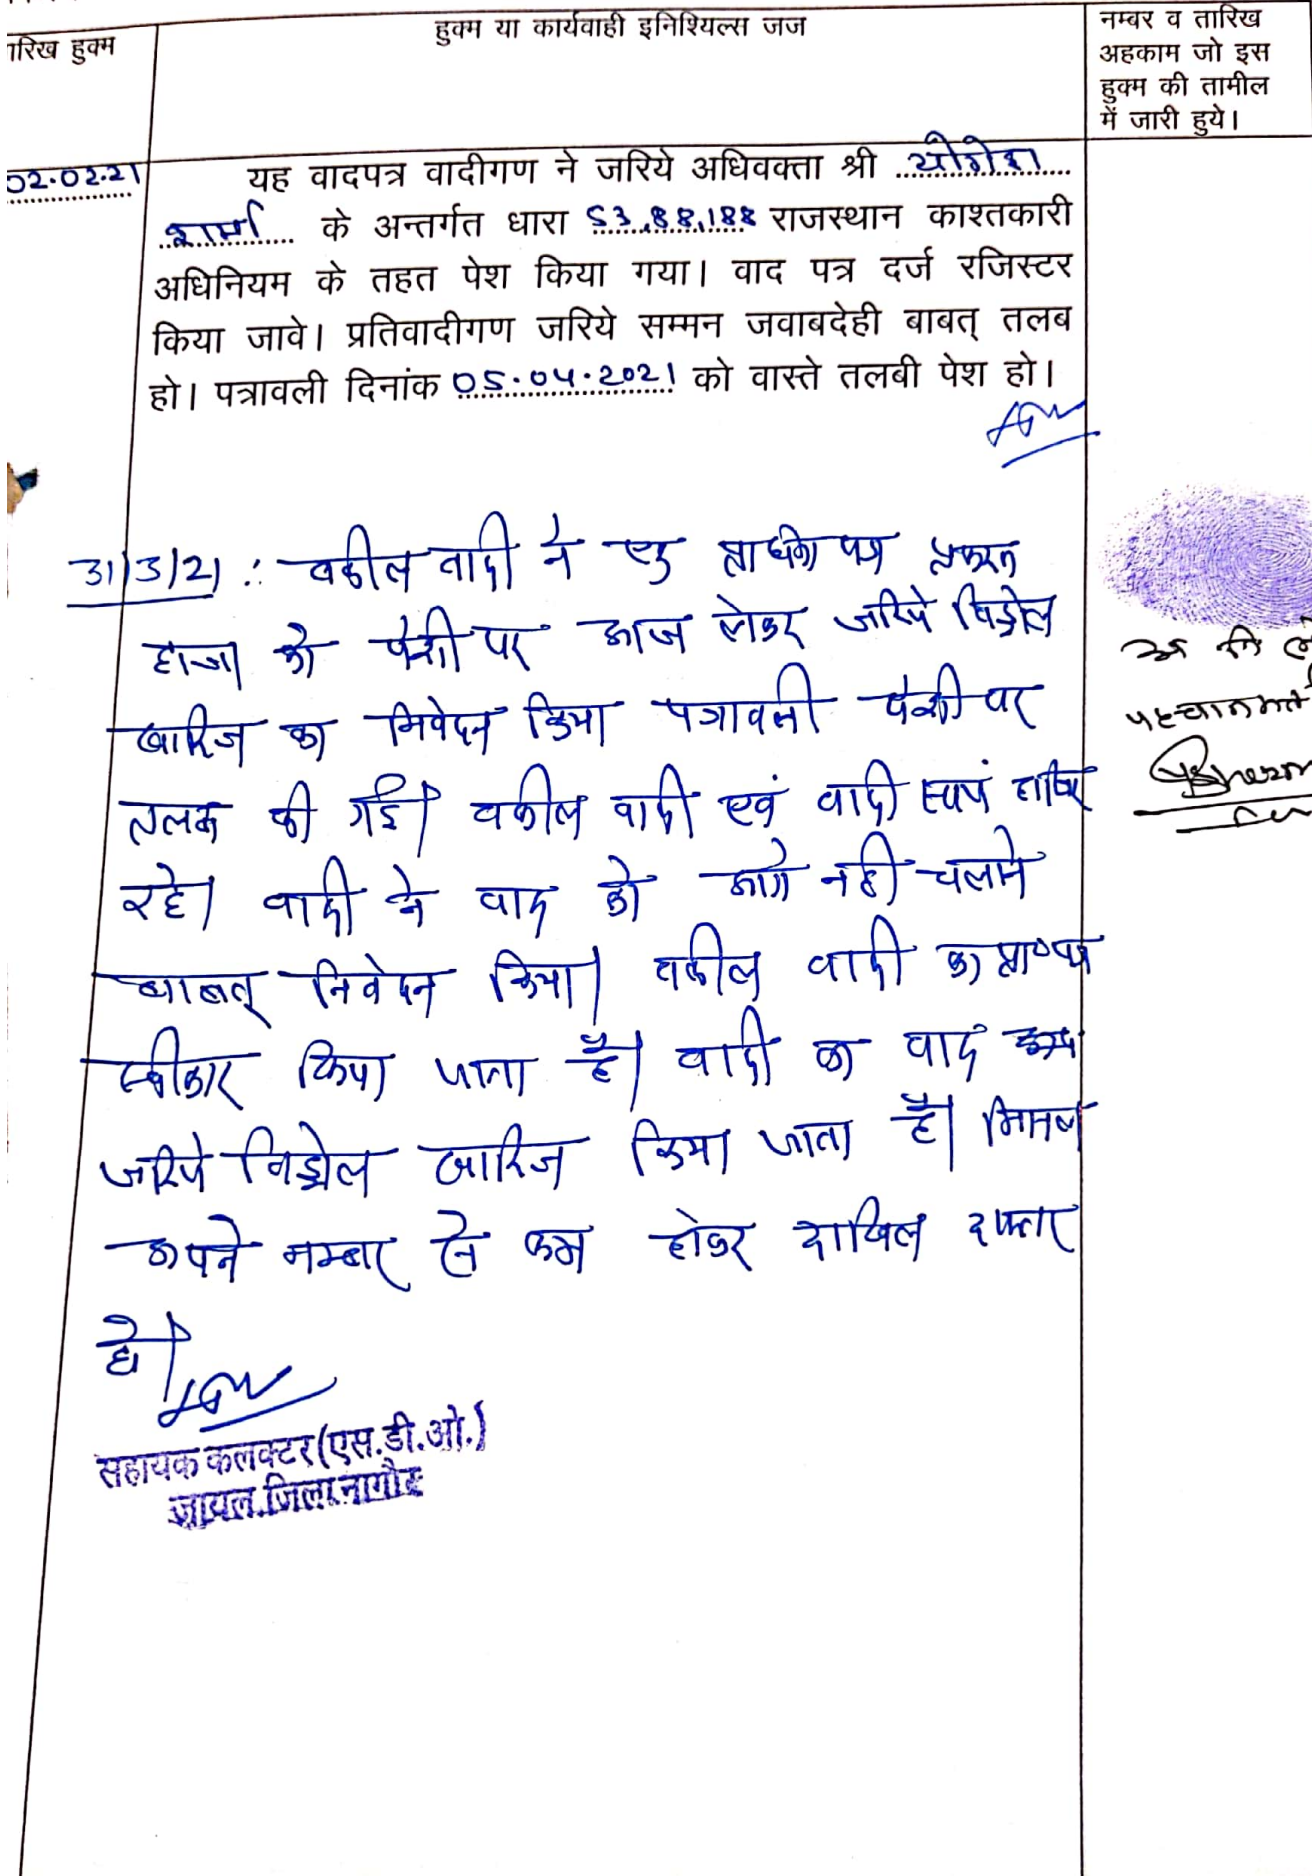 तारिख हुक्म
हुक्म या कार्यवाही इनिश्यिल्स जज
नम्बर व तारिख
अहकाम जो इस
हुक्म की तामील
में जारी हुये।
02.02.21
यह वादपत्र वादीगण ने जरिये अधिवक्ता श्री योगेश
शर्मा के अन्तर्गत धारा 53,88,188 राजस्थान काश्तकारी
अधिनियम के तहत पेश किया गया। वाद पत्र दर्ज रजिस्टर
किया जावे। प्रतिवादीगण जरिये सम्मन जवाबदेही बाबत् तलब
हो। पत्रावली दिनांक 05.04.2021 को वास्ते तलबी पेश हो।
31/3/21 : वकील वादी ने एक प्रार्थना पत्र प्रकरण
हाजा को पेशी पर आज लेकर जरिये विड्रोल
खारिज का निवेदन किया पत्रावली पेशी पर
तलब की गई। वकील वादी एवं वादी स्वयं हाजिर
रहे। वादी ने वाद को आगे नही चलाने
बाबत् निवेदन किया। वकील वादी का प्रा०पत्र
स्वीकार किया जाता है। वादी का वाद
जरिये विड्रोल खारिज किया जाता है। मिसल
अपने नम्बर से कम होकर दाखिल दफ्तर
हो।
सहायक कलक्टर (एस.डी.ओ.)
जायल जिला नागौर
पहचानकर्ता